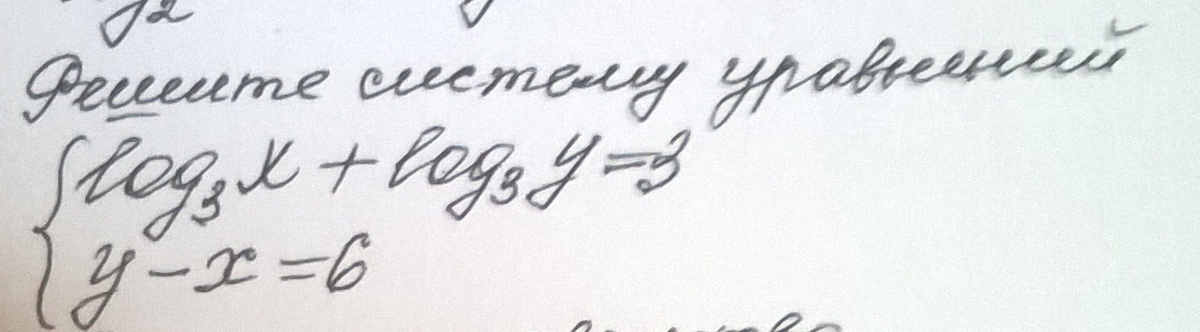 Решите систему уравнений
log₃x + log₃y = 3
y - x = 6